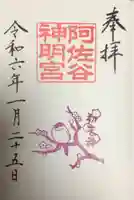 奉拝
阿佐谷
神明宮
令和六年一月二十五日